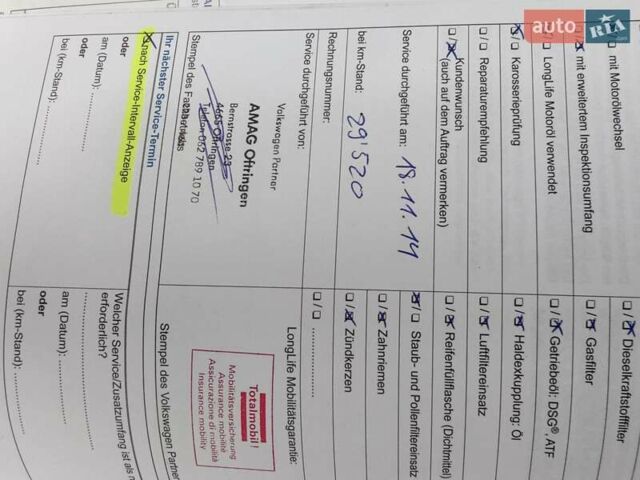 auto RIA
☐/☐ mit Motorölwechsel
☐/☒ mit erweitertem Inspektionsumfang
☐/☐ LongLife Motoröl verwendet
☒/☐ Karosserieprüfung
☐/☐ Reparaturempfehlung
☐/☒ Kundenwunsch
(auch auf dem Auftrag vermerken)
Service durchgeführt am: 18.11.14
bei km-Stand: 29'520
Rechnungsnummer:
Service durchgeführt von:
Volkswagen Partner
AMAG Oftringen
Bernstrasse
4665 Oftringen
Telefon 062 789 10 70
Stempel des
Ihr nächster Service-Termin
☒ nach Service-Intervall-Anzeige
oder
am (Datum):
oder
bei (km-Stand):
☐/☒ Dieselkraftstofffilter
☐/☒ Gasfilter
☐/☒ Getriebeöl: DSG®, ATF
☐/☒ Haldexkupplung: Öl
☐/☒ Luftfiltereinsatz
☐/☒ Reifenfüllflasche (Dichtmittel)
☒/☐ Staub- und Pollenfiltereinsatz
☐/☒ Zahnriemen
☐/☒ Zündkerzen
☐/☐
LongLife Mobilitätsgarantie:
Totalmobil!
Mobilitätsversicherung
Assurance mobilité
Assicurazione di mobilità
Insurance mobility
Stempel des Volkswagen Partner
Welcher Service/Zusatzumfang ist als
erforderlich?
am (Datum):
oder
bei (km-Stand):